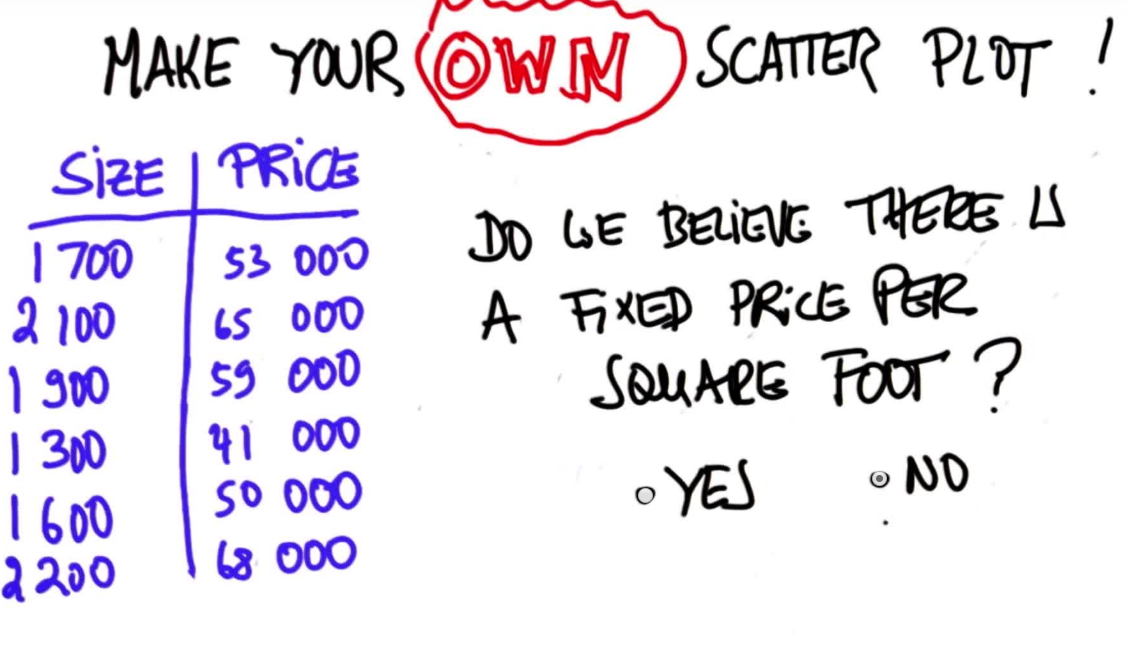 MAKE YOUR OWN SCATTER PLOT !
SIZE PRICE
1 700 53 000
2 100 65 000
1 900 59 000
1 300 41 000
1 600 50 000
2 200 68 000
DO WE BELIEVE THERE IS
A FIXED PRICE PER
SQUARE FOOT ?
YES NO